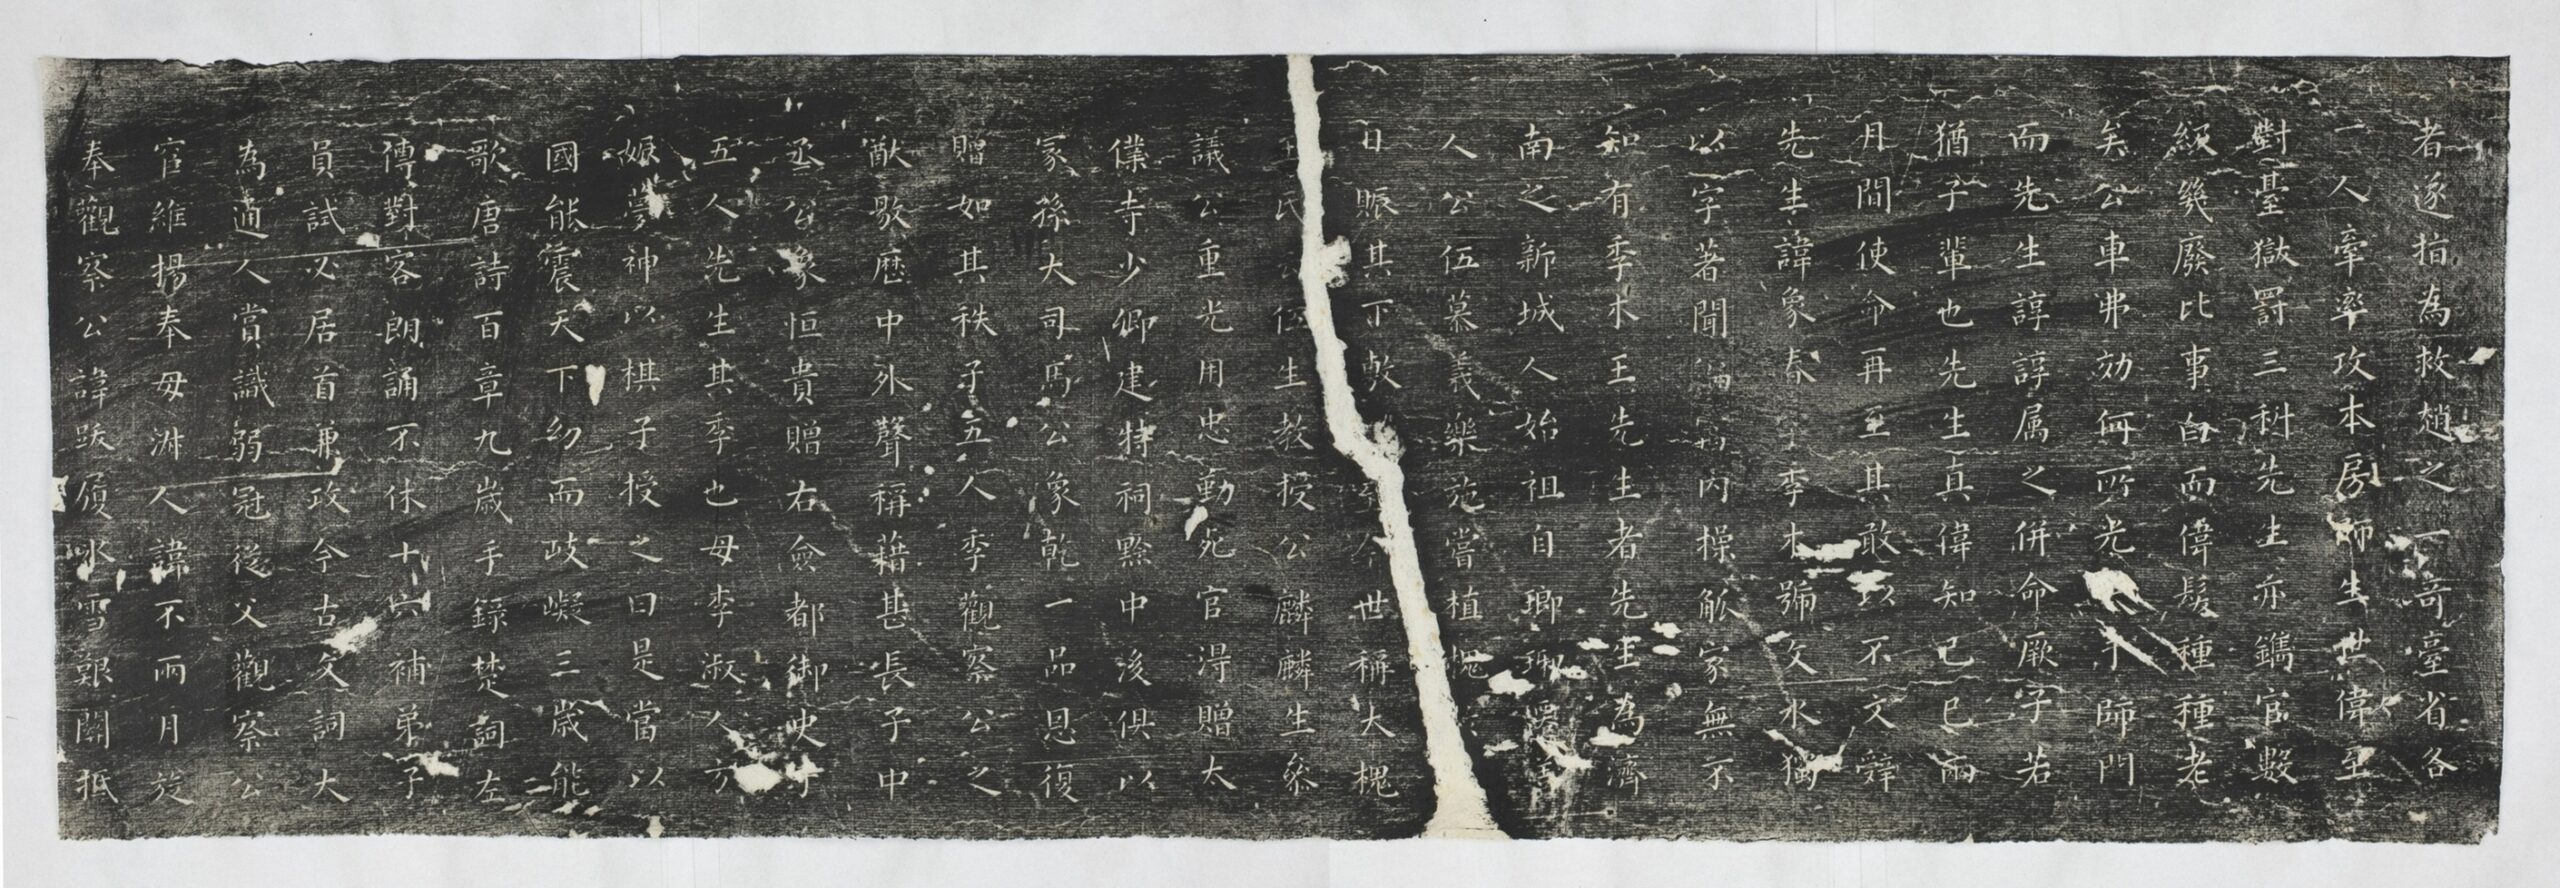 者逐指為救趙之一奇臺省各
一人牽率攻本房師生世偉至
對臺獄罰三科先生亦鐫官數
級幾廢比事白而偉髮種種老
矣公車弗効何所光于師門
而先生諄諄属之併命厥子若
猶子輩也先生真偉知已已兩
月間使命再至其敢以不文辭
先生諱象春字季木號文水獨
以字著聞海内操觚家無不
知有季木王先生者先生為濟
南之新城人始祖自瑯琊
人公伍慕義樂施嘗植槐
日賑其下故至今世稱大槐
王氏公伍生教授公麟麟生叅
議公重光用忠勤死官得贈太
僕寺少卿建特祠黔中後俱以
冢孫大司馬公象乾一品恩復
贈如其秩子五人季觀察公之
猷敭歷中外聲稱藉甚長子中
丞公象恒貴贈右僉都御史子
五人先生其季也母李淑人方
娠夢神以棋子授之曰是當以
國能震天下幼而歧嶷三歲能
歌唐詩百章九歲手錄楚詞左
傳對客朗誦不休十六補弟子
員試必居首兼攻今古文詞大
為通人賞識弱冠從父觀察公
官維揚奉母淑人諱不兩月旋
奉觀察公諱跋履氷雪艱關抵